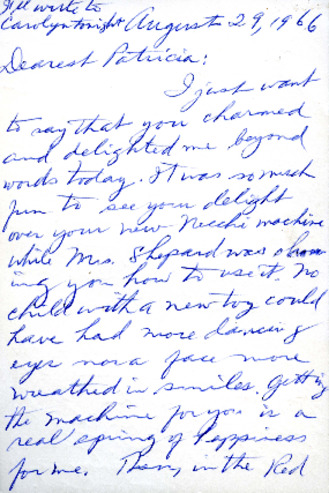 I'll write to
Carolyn tonight August 29, 1966
Dearest Patricia:
I just want
to say that you charmed
and delighted me beyond
words today. It was so much
fun to see your delight
over your new Necchi machine
while Mrs. Shepard was show-
ing you how to use it. No
child with a new toy could
have had more dancing
eyes nor a face more
wreathed in smiles. Getting
the machine for you is a
real spring of happiness
for me. Then, in the Red